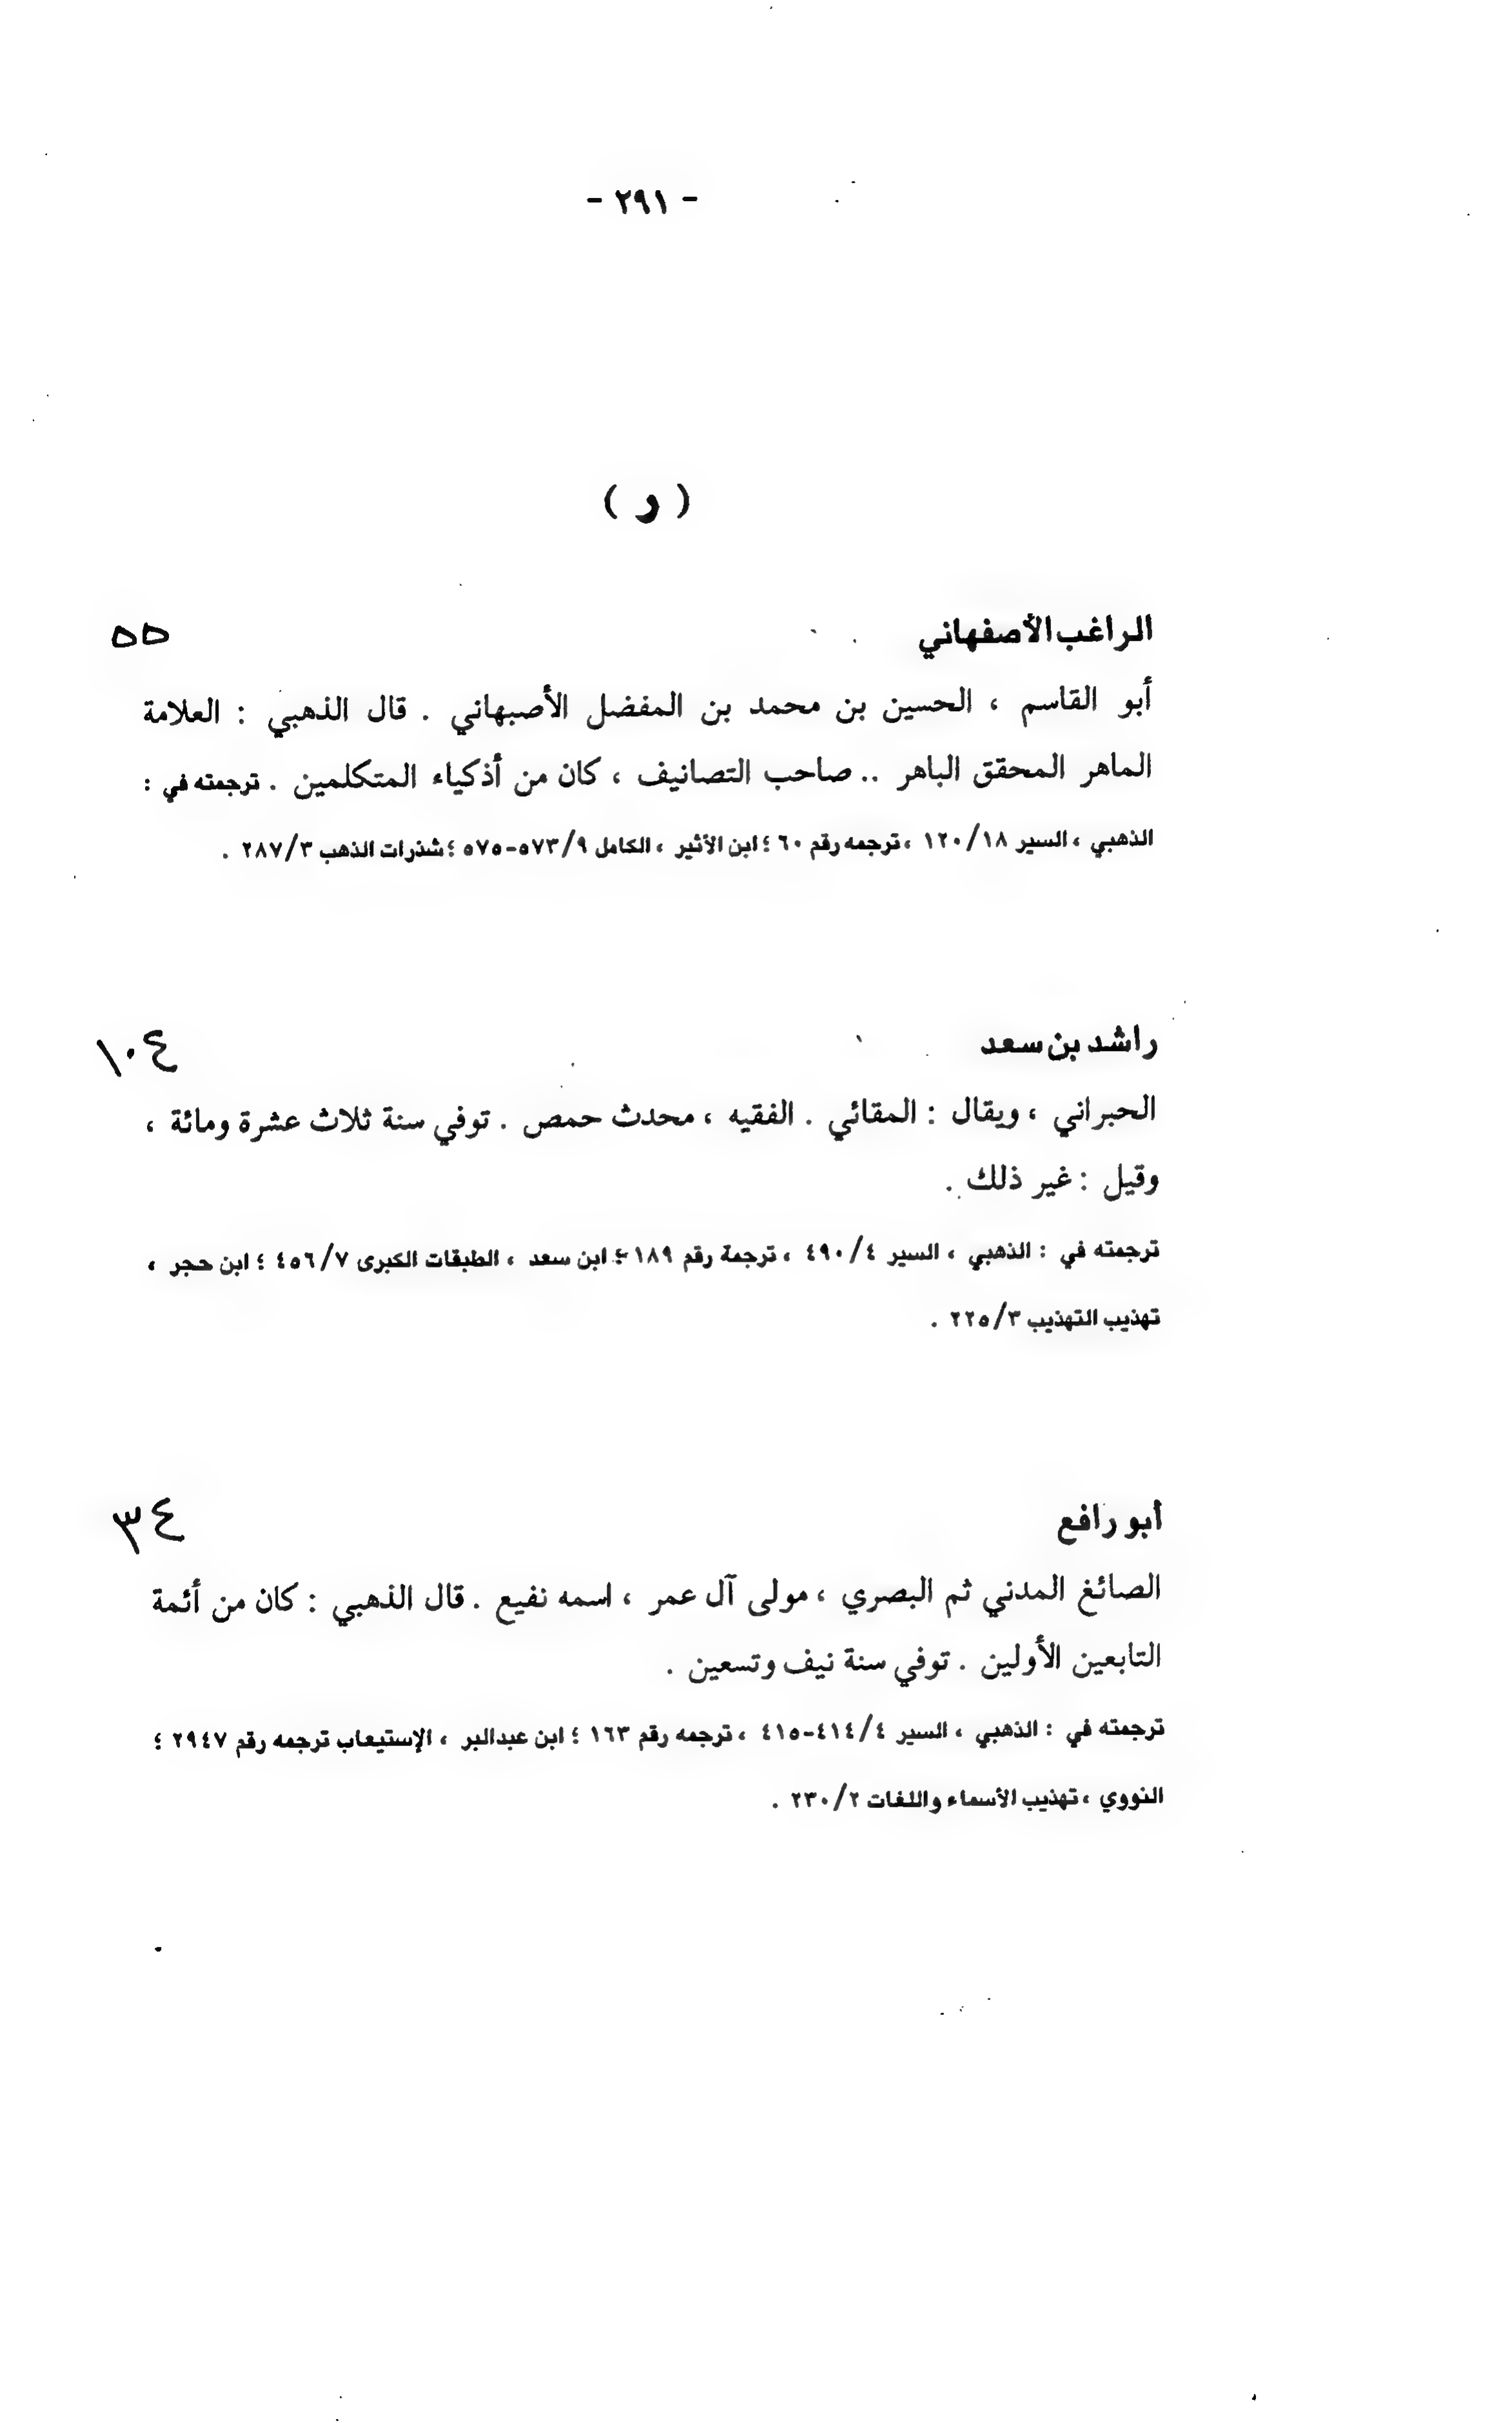 - ٢٩١ -
( ر )
الراغب الأصفهاني ٥٥
أبو القاسم ، الحسين بن محمد بن المفضل الأصبهاني . قال الذهبي : العلامة
الماهر المحقق الباهر .. صاحب التصانيف ، كان من أذكياء المتكلمين . ترجمته في :
الذهبي ، السير ١٢٠/١٨ ، ترجمه رقم ٦٠ ؛ ابن الأثير ، الكامل ٥٧٣/٩-٥٧٥ ؛ شذرات الذهب ٢٨٧/٣ .
راشد بن سعد ١٠٤
الحبراني ، ويقال : المقائي . الفقيه ، محدث حمص . توفي سنة ثلاث عشرة ومائة ،
وقيل : غير ذلك .
ترجمته في : الذهبي ، السير ٤٩٠/٤ ، ترجمة رقم ١٨٩ ؛ ابن سعد ، الطبقات الكبرى ٤٥٦/٧ ؛ ابن حجر ،
تهذيب التهذيب ٢٢٥/٣ .
أبو رافع ٣٤
الصائغ المدني ثم البصري ، مولى آل عمر ، اسمه نفيع . قال الذهبي : كان من أئمة
التابعين الأولين . توفي سنة نيف وتسعين .
ترجمته في : الذهبي ، السير ٤١٤/٤-٤١٥ ، ترجمه رقم ١٦٣ ؛ ابن عبدالبر ، الإستيعاب ترجمه رقم ٢٩٤٧ ؛
النووي ، تهذيب الأسماء واللغات ٢٣٠/٢ .